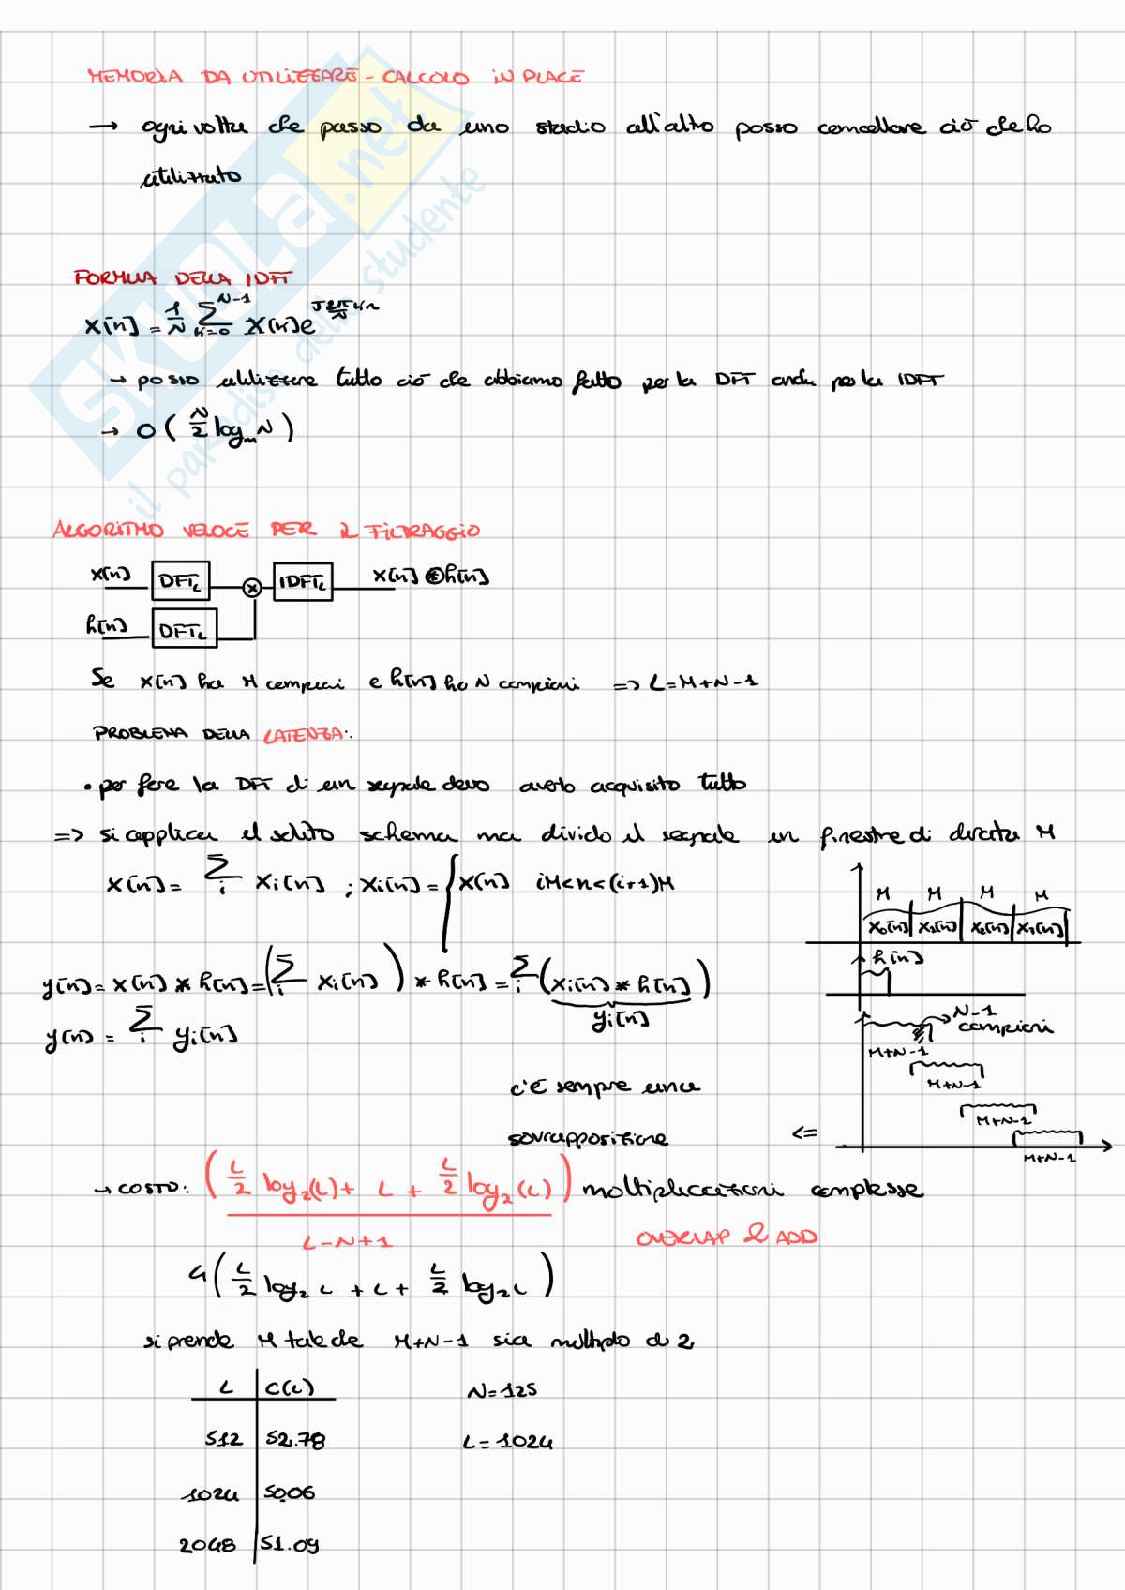 MEMORIA DA UTILIZZARE - CALCOLO IN PLACE
→ ogni volta che passo da uno stadio all'altro posso cancellare ciò che ho
utilizzato
FORMULA DELLA IDFT
x[n] = 1/N Σ_{k=0}^{N-1} X[k] e^{j 2π/N kn}
→ posso utilizzare tutto ciò che abbiamo fatto per la DFT anche per la IDFT
→ O( N/2 log_m N )
ALGORITMO VELOCE PER IL FILTRAGGIO
x[n] DFT_L x IDFT_L x[n] ⊛ h[n]
h[n] DFT_L
Se x[n] ha M campioni e h[n] ha N campioni => L=M+N-1
PROBLEMA DELLA LATENZA:
• per fare la DFT di un segnale devo averlo acquisito tutto
=> si applica il solito schema ma divido il segnale in finestre di durata M
x[n] = Σ_i x_i[n] ; x_i[n] = { x[n] iM<n<(i+1)M
M M M M
x_0[n] x_1[n] x_2[n] x_3[n]
h[n]
y[n] = x[n] * h[n] = ( Σ_i x_i[n] ) * h[n] = Σ_i ( x_i[n] * h[n] )
y_i[n]
y[n] = Σ_i y_i[n]
N-1
campioni
M+N-1
M+N-1
M+N-1
M+N-1
c'è sempre una
sovrapposizione <=
→ COSTO: ( L/2 log_2(L) + L + L/2 log_2(L) ) moltiplicazioni complesse
L-N+1
OVERLAP & ADD
4( L/2 log_2 L + L + L/2 log_2 L )
si prende M tale che M+N-1 sia multiplo di 2
L C(L)
N=125
512 52.78
L=1024
1024 50.06
2048 51.09
SKUOLA.net
il paradiso dello studente